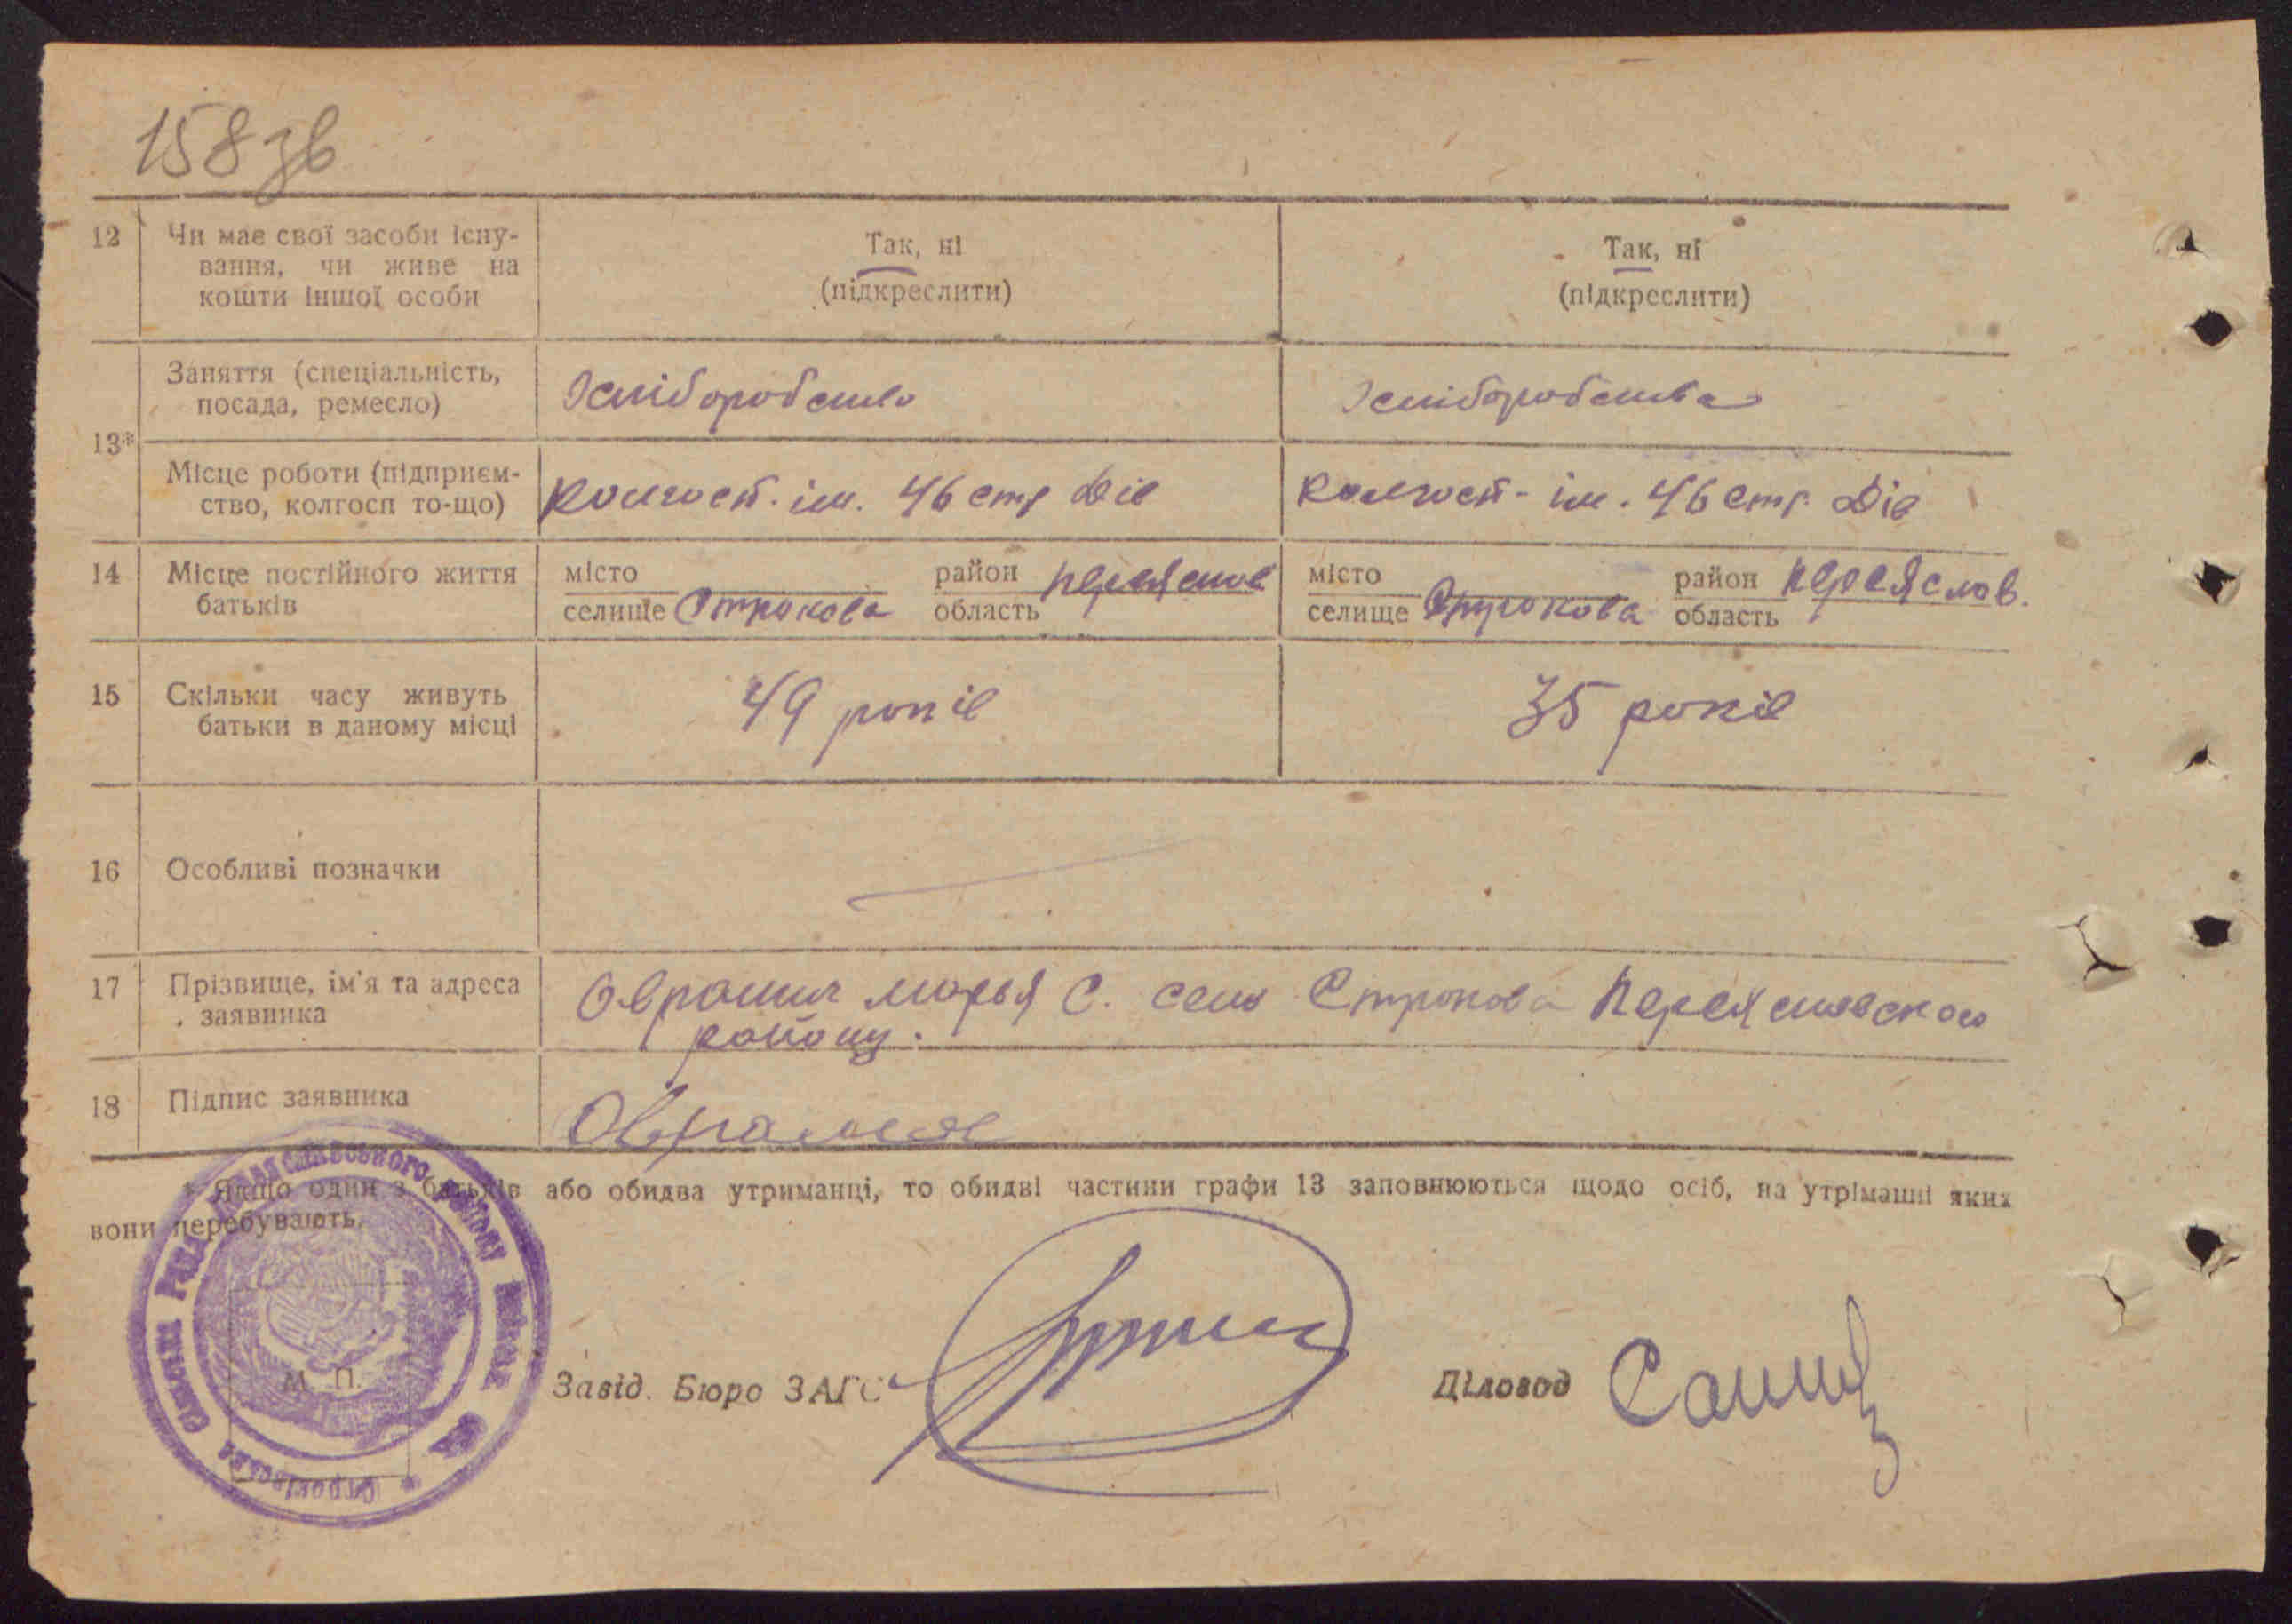 158 зв
12 Чи має свої засоби існу-
вання, чи живе на
кошти іншої особи
Так, ні
(підкреслити)
Так, ні
(підкреслити)
13*
Заняття (спеціальність,
посада, ремесло)
Місце роботи (підприєм-
ство, колгосп то-що)
колгосп. ім. 46 стр Див
колгосп - ім. 46 стр. Див
14 Місце постійного життя
батьків
місто
селище Строкова
район Переяслов
область
місто
селище Строкова
район Переяслов.
область
15 Скільки часу живуть
батьки в даному місці
49 років
35 років
16 Особливі позначки
17 Прізвище, ім'я та адреса
заявника
Марья С. село Строкова Переяславского
району.
18 Підпис заявника
* Якщо один з батьків або обидва утриманці, то обидві частини графи 13 заповнюються щодо осіб, на утріманні яких
вони перебувають.
М. П.
Завід. Бюро ЗАГС
Діловод
Строківська Сільська Рада Переяславського району